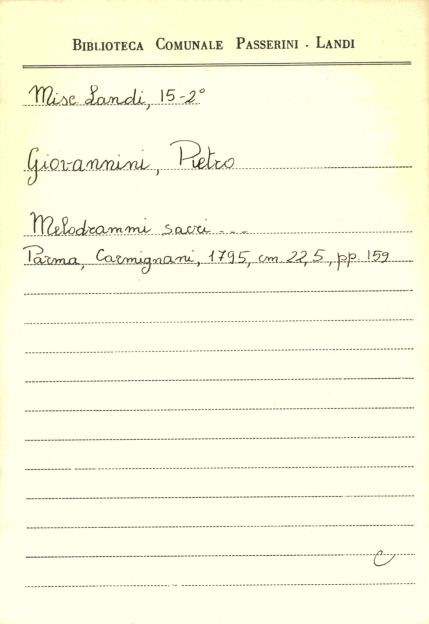 BIBLIOTECA COMUNALE PASSERINI - LANDI
Misc Landi, 15-2°
Giovannini, Pietro
Melodrammi sacri ...
Parma, Carmignani, 1795, cm. 22,5, pp. 159
C